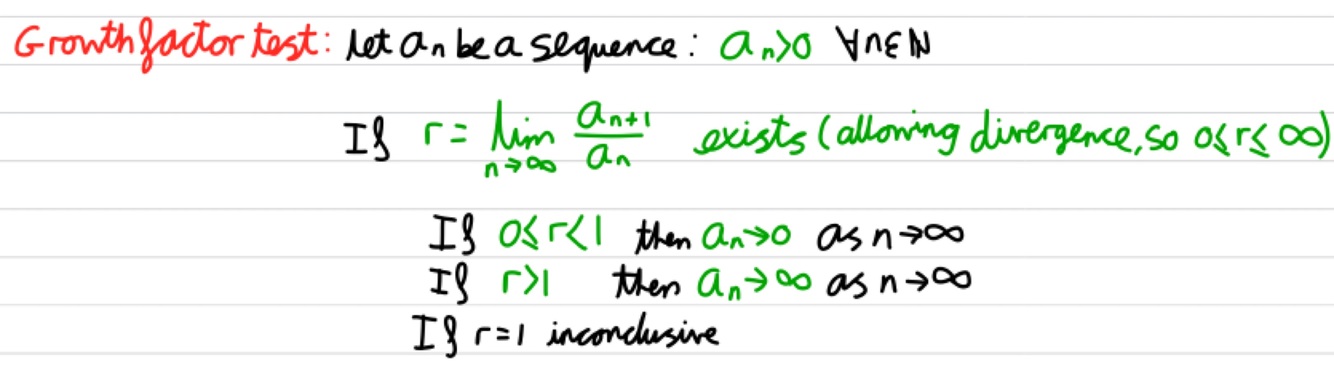 Growth factor test: let aₙ be a sequence: aₙ>0 ∀n∈ℕ
If r = lim n→∞ aₙ₊₁/aₙ exists (allowing divergence, so 0≤r≤∞)
If 0≤r<1 then aₙ→0 as n→∞
If r>1 then aₙ→∞ as n→∞
If r=1 inconclusive